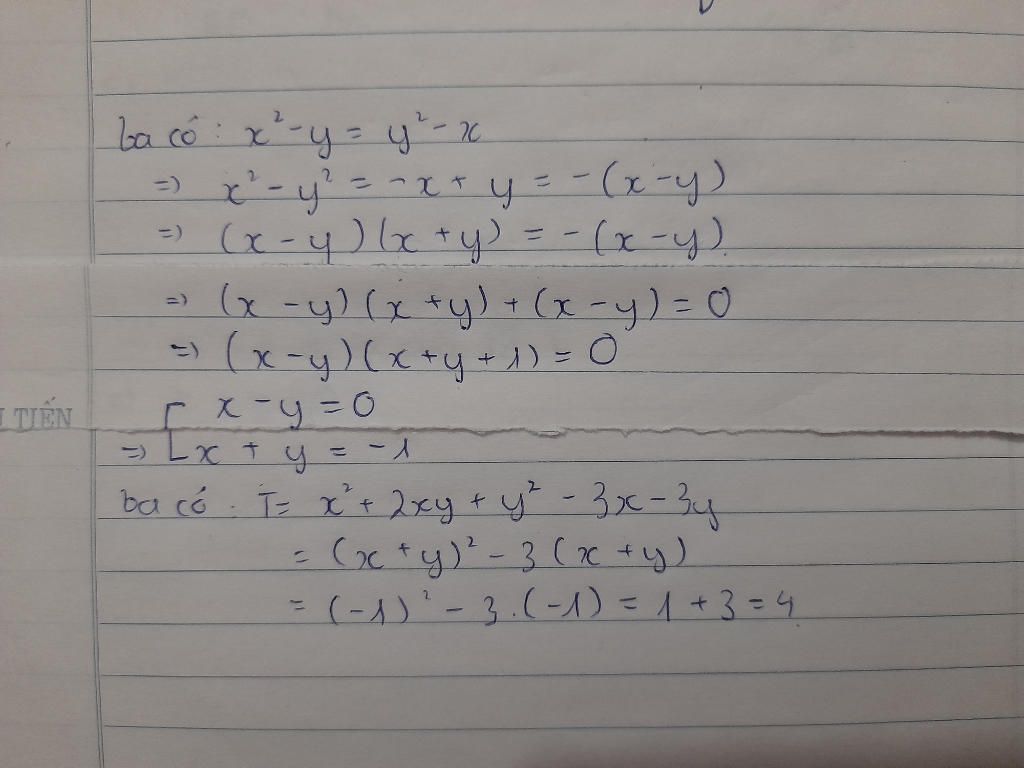 ta có: x² - y = y² - x
=> x² - y² = -x + y = -(x - y)
=> (x - y)(x + y) = -(x - y)
=> (x - y)(x + y) + (x - y) = 0
=> (x - y)(x + y + 1) = 0
TIẾN
[ x - y = 0
=> [ x + y = -1
ta có: T = x² + 2xy + y² - 3x - 3y
= (x + y)² - 3(x + y)
= (-1)² - 3.(-1) = 1 + 3 = 4